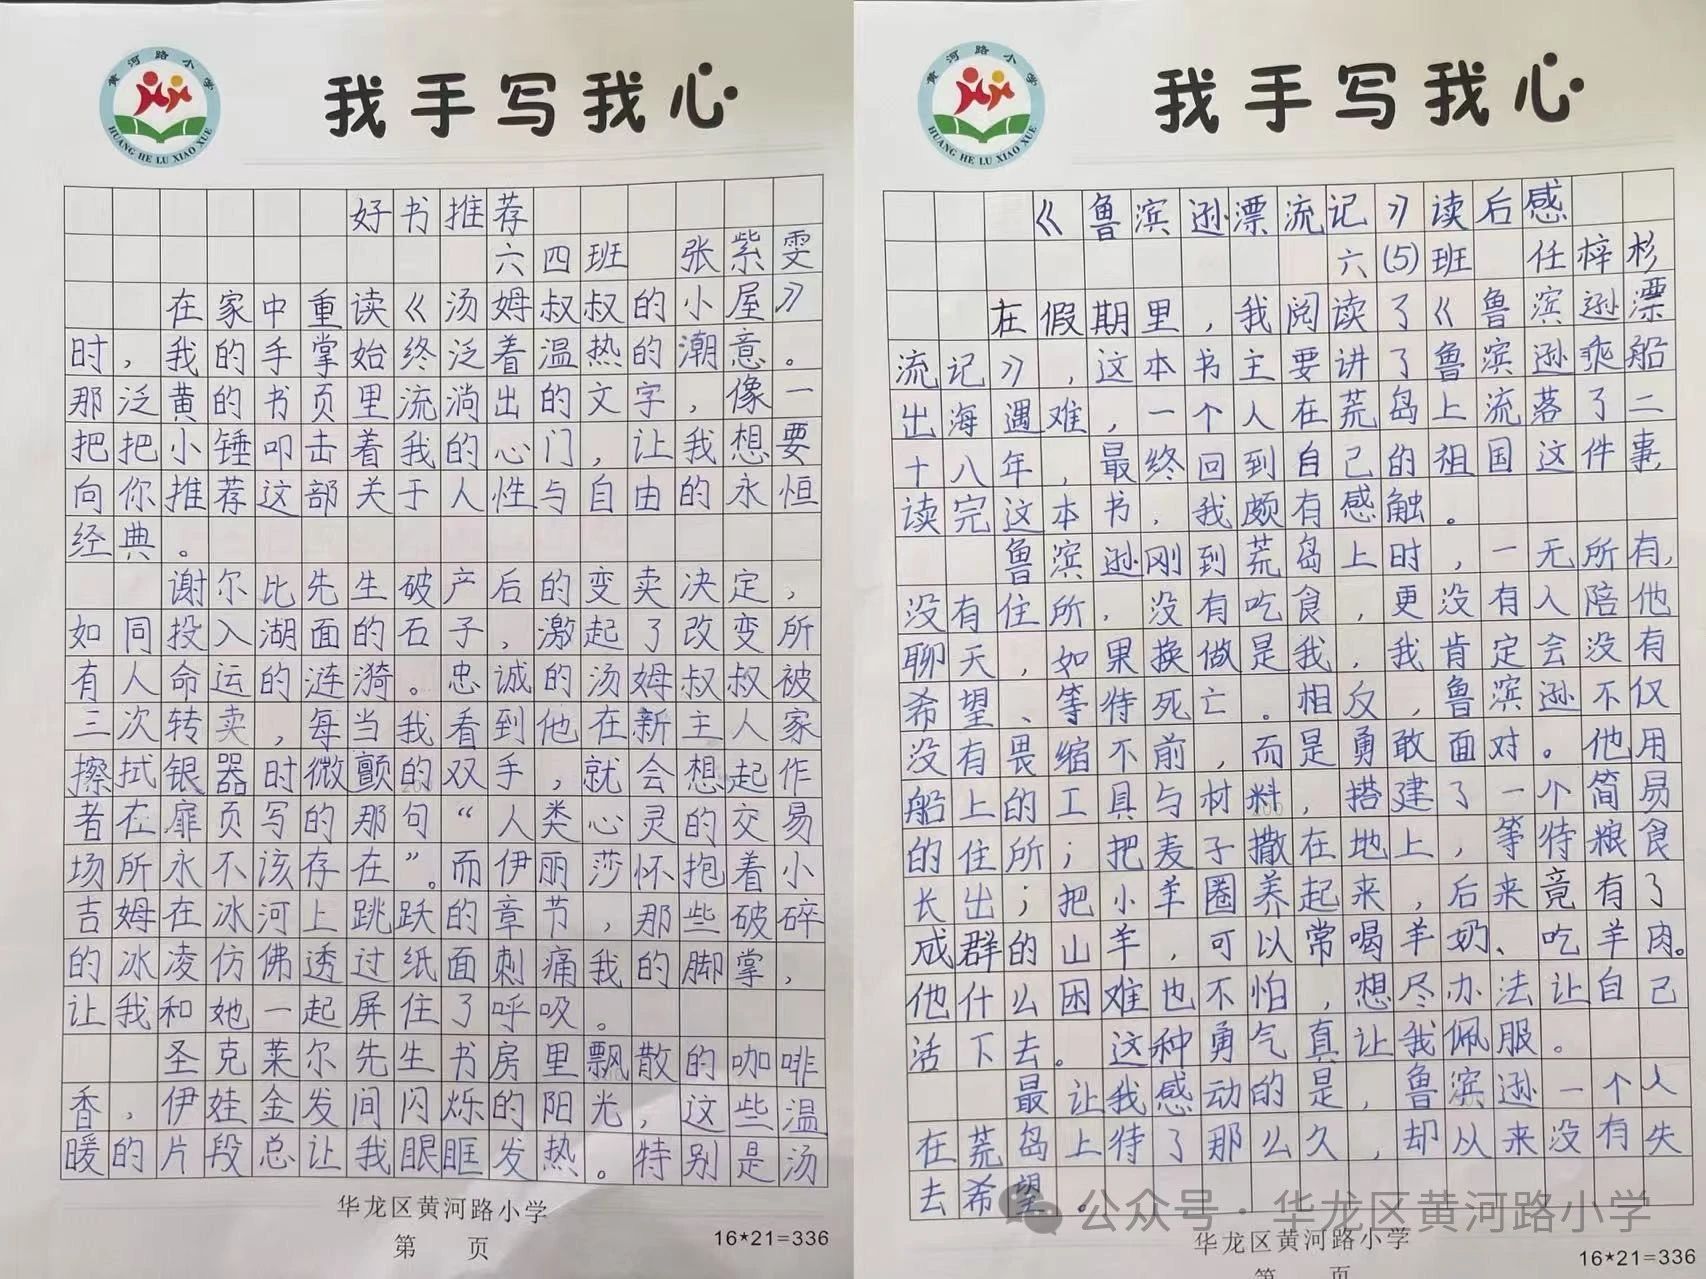 黄河路小学
HUANG HE LU XIAO XUE
我手写我心
好书推荐
六四班 张紫雯
在家中重读《汤姆叔叔的小屋》
时，我的手掌始终泛着温热的潮意。
那泛黄的书页里流淌出的文字，像一
把把小锤叩击着我的心门，让我想要
向你推荐这部关于人性与自由的永恒
经典。
谢尔比先生破产后的变卖决定，
如同投入湖面的石子，激起了改变所
有人命运的涟漪。忠诚的汤姆叔叔被
三次转卖，每当我看到他在新主人家
擦拭银器时微颤的双手，就会想起作
者在扉页写的那句“人类心灵的交易
场所永不该存在”。而伊丽莎怀抱着小
吉姆在冰河上跳跃的章节，那些破碎
的冰凌仿佛透过纸面刺痛我的脚掌，
让我和她一起屏住了呼吸。
圣克莱尔先生书房里飘散的咖啡
香，伊娃金发间闪烁的阳光，这些温
暖的片段总让我眼眶发热。特别是汤
华龙区黄河路小学
第 页
16*21=336
黄河路小学
HUANG HE LU XIAO XUE
我手写我心
《鲁滨逊漂流记》读后感
六(5)班 任梓杉
在假期里，我阅读了《鲁滨逊漂
流记》，这本书主要讲了鲁滨逊乘船
出海遇难，一个人在荒岛上流落了二
十八年，最终回到自己的祖国这件事
读完这本书，我颇有感触。
鲁滨逊刚到荒岛上时，一无所有，
没有住所，没有吃食，更没有人陪他
聊天，如果换做是我，我肯定会没有
希望、等待死亡。相反，鲁滨逊不仅
没有畏缩不前，而是勇敢面对。他用
船上的工具与材料，搭建了一个简易
的住所；把麦子撒在地上，等待粮食
长出；把小羊圈养起来，后来竟有了
成群的山羊，可以常喝羊奶、吃羊肉。
他什么困难也不怕，想尽办法让自己
活下去。这种勇气真让我佩服。
最让我感动的是，鲁滨逊一个人
在荒岛上待了那么久，却从来没有失
去希望。
公众号·华龙区黄河路小学
华龙区黄河路小学
第 页
16*21=336